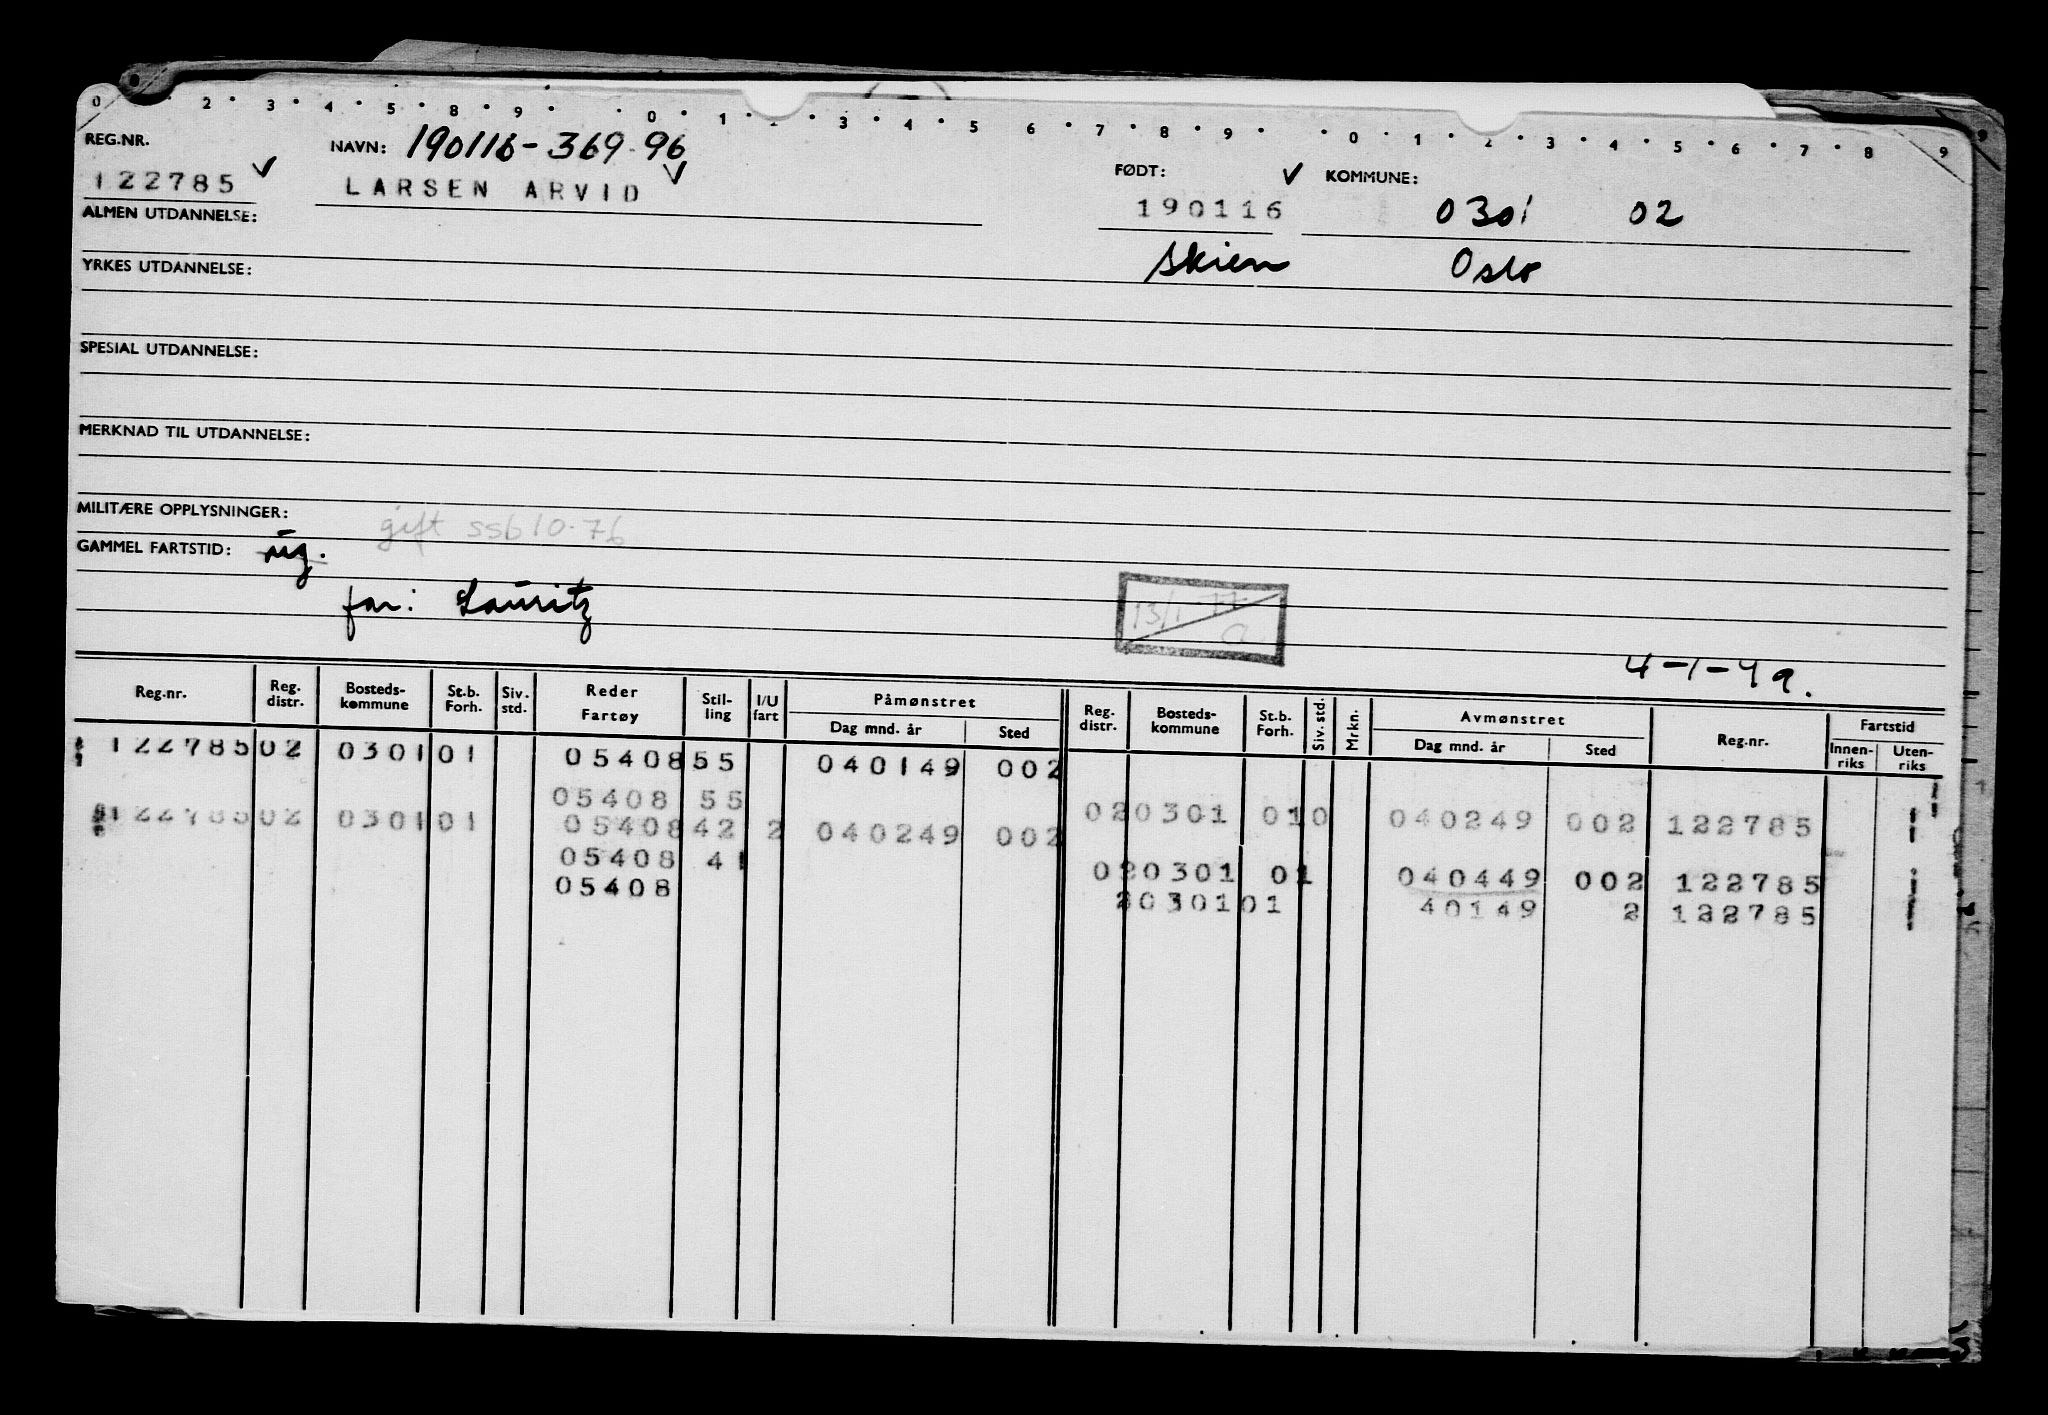 0 · 2 · 3 · 4 · 5 · 8 · 9 · · 0 · 1 · 2 · 3 · 4 · 5 6 · 7 · 8 · 9 · · 0 · 1 · 2 · 3 · 4 · 5 · 6 · 7 · 8 9
REG.NR. NAVN: 190116-369-96 FØDT: KOMMUNE:
122785 LARSEN ARVID 190116 0301 02
ALMEN UTDANNELSE: Skien Oslo
YRKES UTDANNELSE:
SPESIAL UTDANNELSE:
MERKNAD TIL UTDANNELSE:
MILITÆRE OPPLYSNINGER: gift ssb 10-76
GAMMEL FARTSTID:
far: Lauritz 13/1 77
4-1-49.
Reg.nr. Reg. distr. Bosteds-kommune St.b. Forh. Siv. std. Reder Fartøy Stil-ling I/U fart Påmønstret Dag mnd. år Sted Reg. distr. Bosteds-kommune St.b. Forh. Siv. std. Mrkn. Avmønstret Dag mnd. år Sted Reg.nr. Fartstid Innen-riks Uten-riks
122785 02 0301 01 05408 55 040149 002
05408 55 02 0301 01 0 040249 002 122785
122785 02 0301 01 05408 42 2 040249 002
05408 41 02 0301 01 040449 002 122785
05408 2 0301 01 40149 2 122785